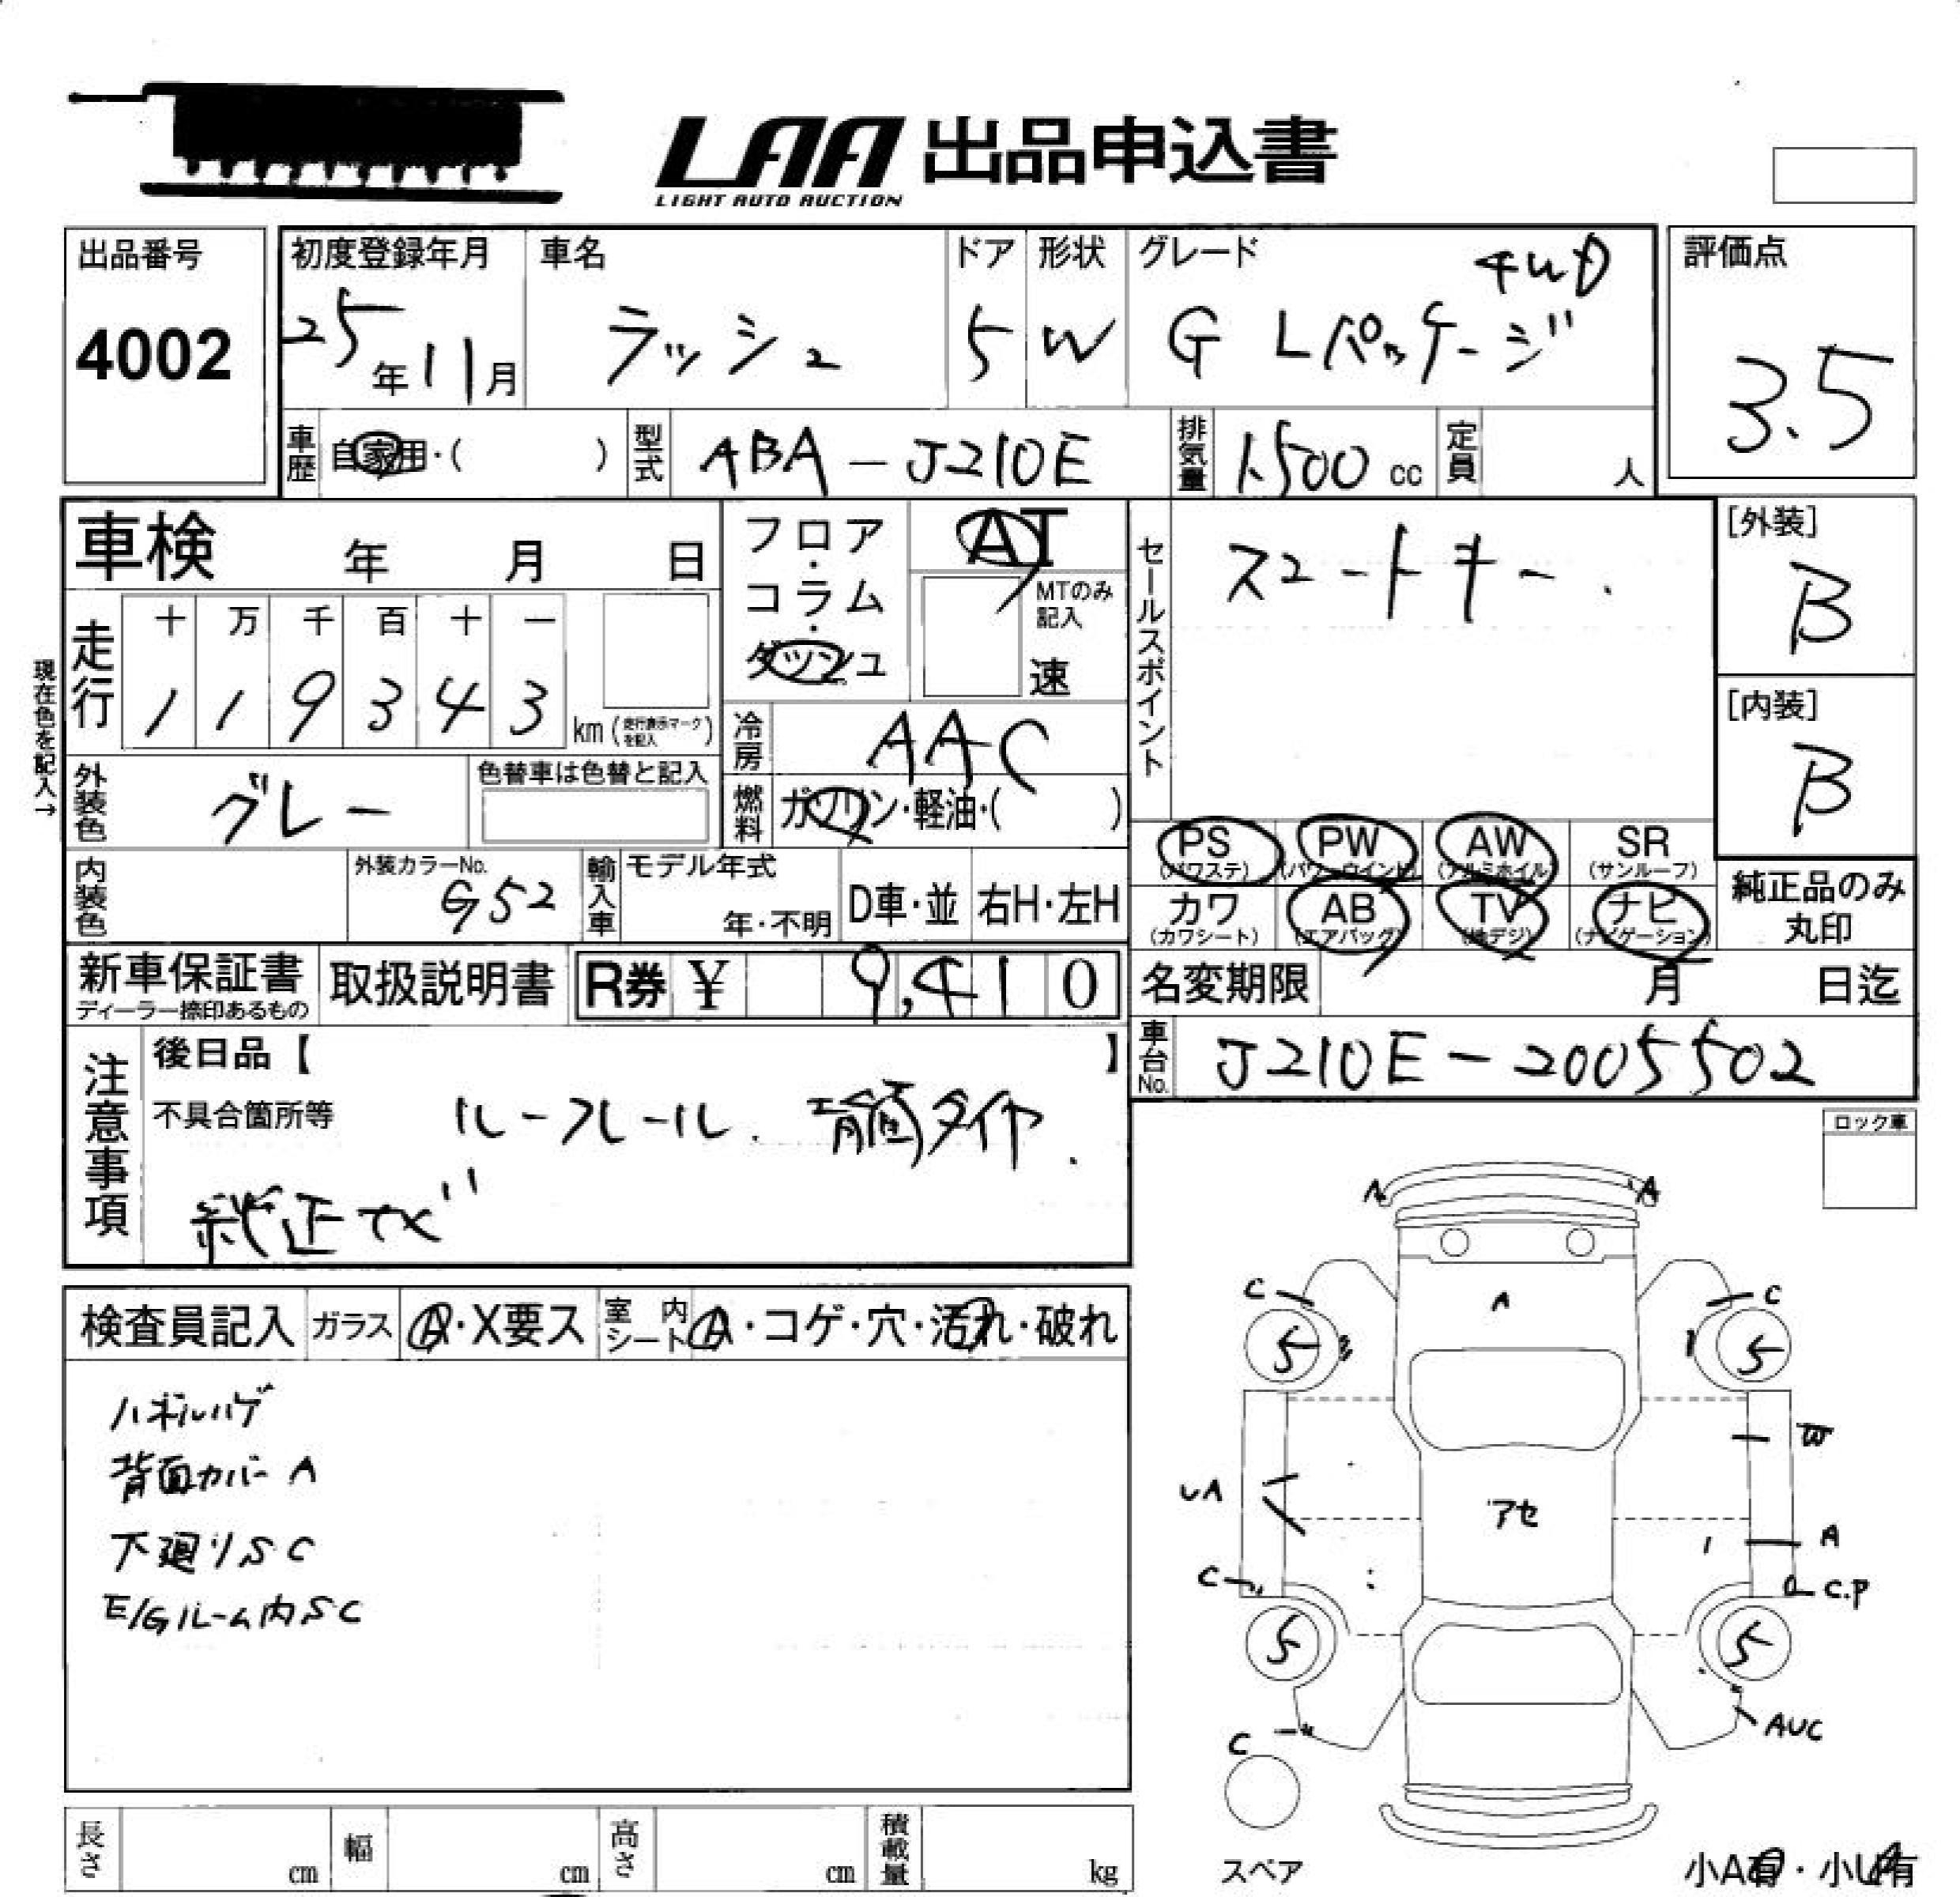 LAA 出品申込書
LIGHT AUTO AUCTION
出品番号
4002
初度登録年月
25年11月
車名
ラッシュ
ドア
5
形状
W
グレード
4WD
G Lパッケージ
評価点
3.5
車歴
自家用・( )
型式
ABA-J210E
排気量
1,500 cc
定員
人
車検 年 月 日
フロア・コラム・ダッシュ
AT
MTのみ記入
速
セールスポイント
スマートキー.
[外装]
B
[内装]
B
現在色を記入→
走行
十 万 千 百 十 一
1 1 9 3 4 3
km (走行表示マークを記入)
冷房
AAC
燃料
ガソリン・軽油・( )
外装色
グレー
色替車は色替と記入
内装色
外装カラーNo.
G52
輸入車
モデル年式
年・不明
D車・並
右H・左H
PS (パワステ)
PW (パワーウインド)
AW (アルミホイル)
SR (サンルーフ)
カワ (カワシート)
AB (エアバッグ)
TV (地デジ)
ナビ (ナビゲーション)
純正品のみ丸印
新車保証書
ディーラー捺印あるもの
取扱説明書
R券 ¥ 9,410
名変期限 月 日迄
車台No.
J210E-2005502
注意事項
後日品【 】
不具合箇所等
ルーフレール. 背面タイヤ.
純正ナビ
ロック車
検査員記入
ガラス
A・X要ス
室内シート
A・コゲ・穴・汚れ・破れ
ハンドルハゲ
背面カバーA
下廻りSC
E/Gルーム内SC
A A
C A C
5 5
W
UA アセ A
C C.P
5 5
C AUC
スペア
小A有・小U有
長さ cm
幅 cm
高さ cm
積載量 kg